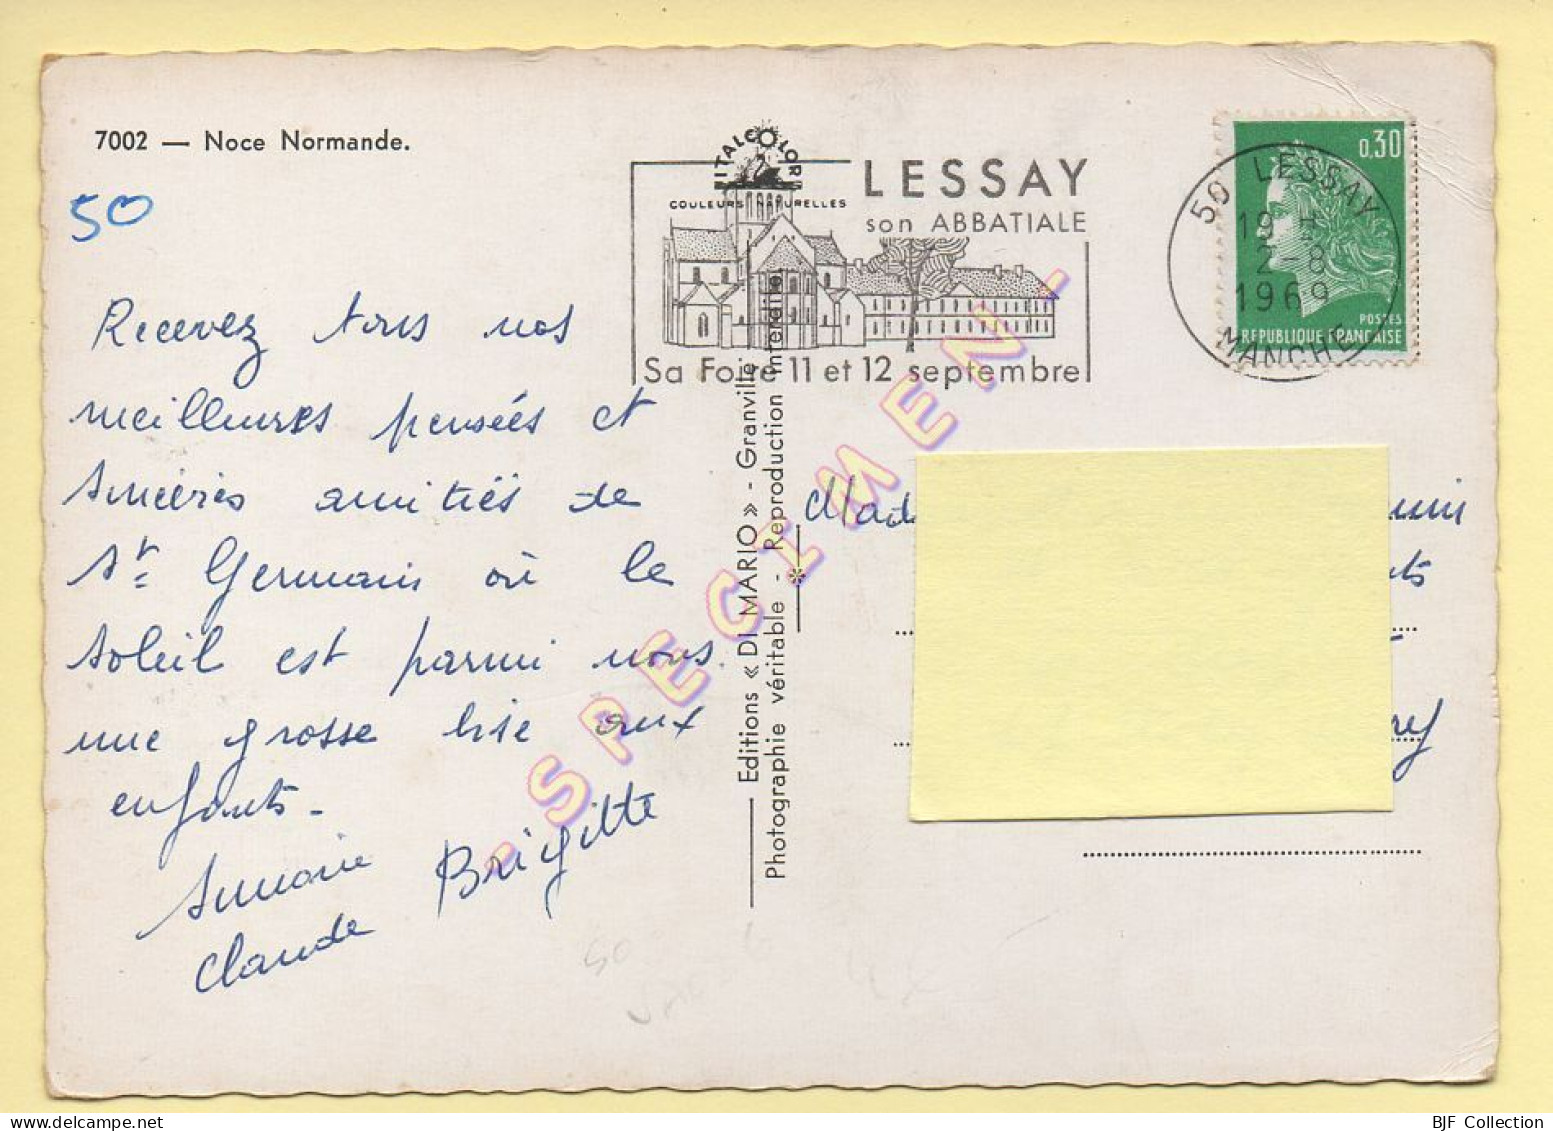 7002 — Noce Normande.
50
Recevez tous nos
meilleures pensées et
sincères amitiés de
St Germain où le
soleil est parmi nous.
une grosse bise aux
enfants -
Brigitte
Claude
ITALCOLOR
COULEURS NATURELLES
LESSAY
son ABBATIALE
Sa Foire 11 et 12 septembre
50 LESSAY
19 H
2-8
1969
MANCHE
0,30
POSTES
REPUBLIQUE FRANÇAISE
Editions « DI MARIO » - Granville
Photographie véritable - Reproduction interdite
- SPECIMEN -
50
BJF Collection